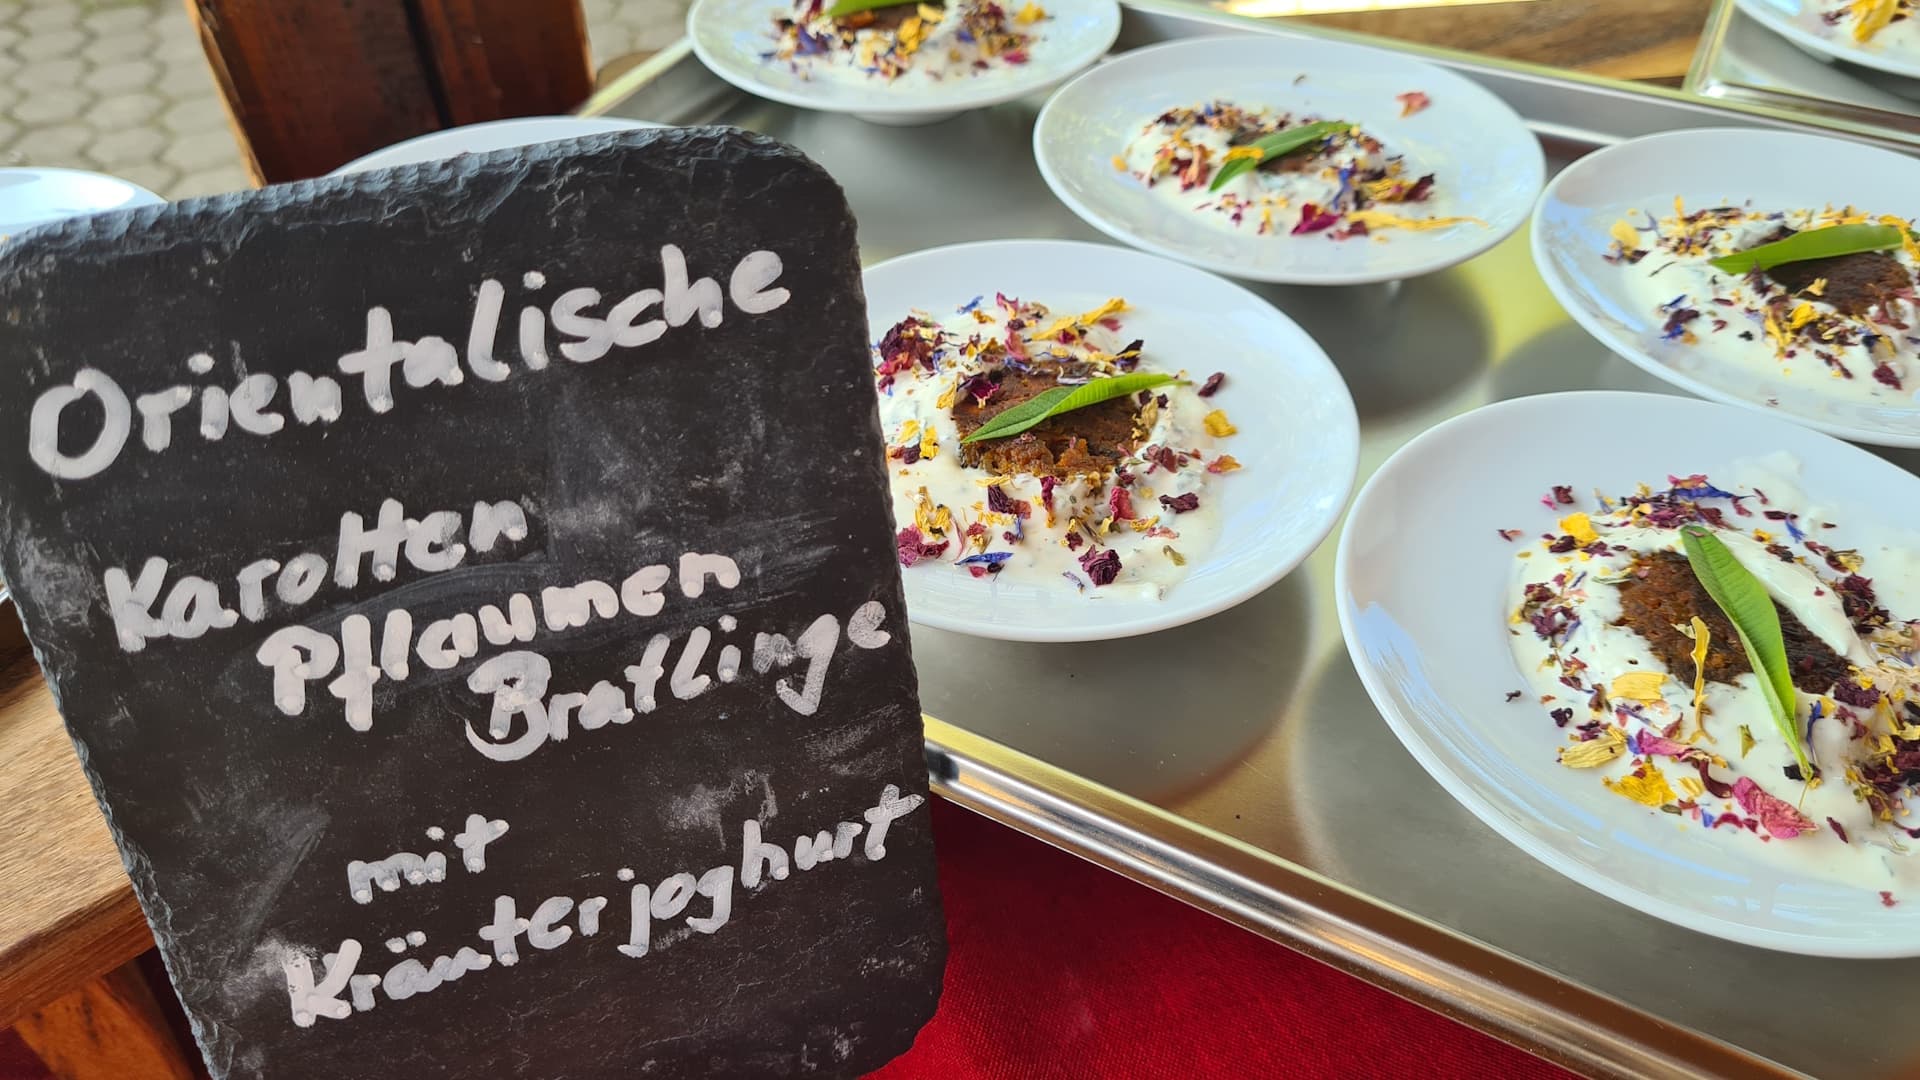 Orientalische
Karotten
Pflaumen
Bratlinge
mit
Kräuterjoghurt